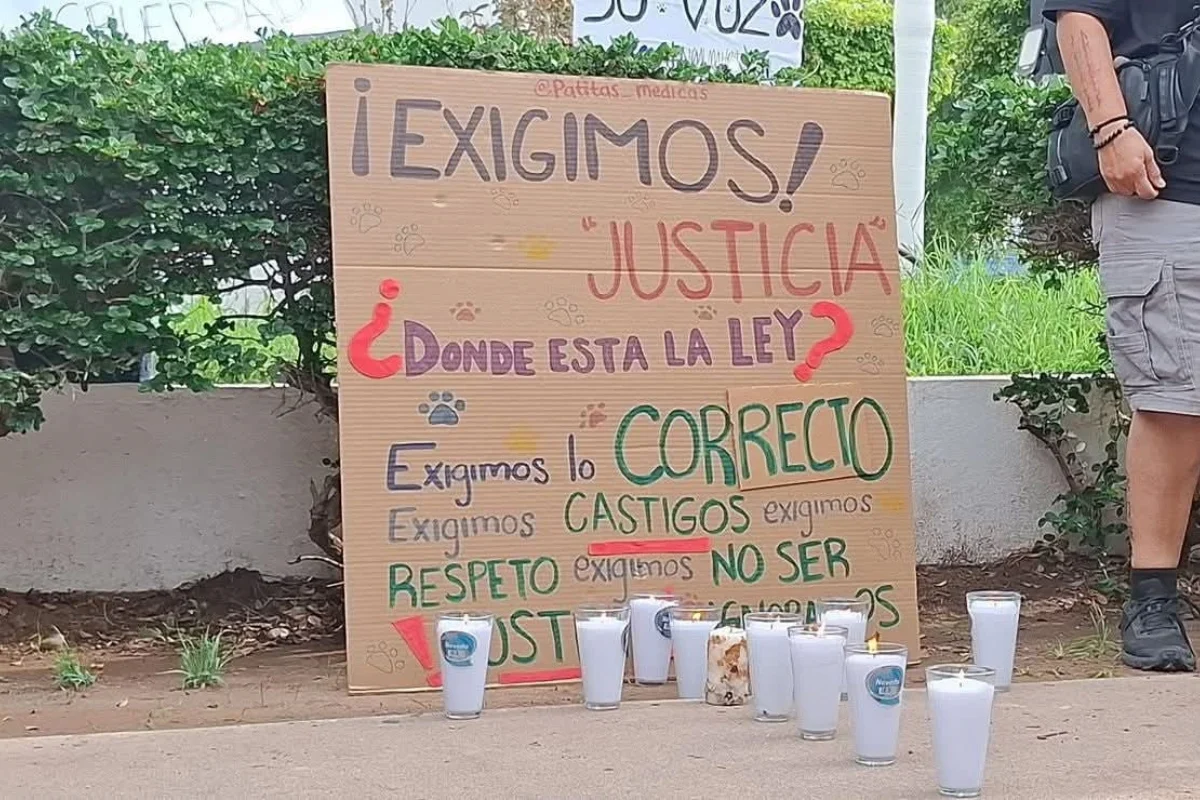 SU VOZ
@Patitas_medicas
¡EXIGIMOS!
"JUSTICIA"
¿DONDE ESTA LA LEY?
EXIGIMOS lo CORRECTO
EXIGIMOS CASTIGOS exigimos
RESPETO exigimos NO SER